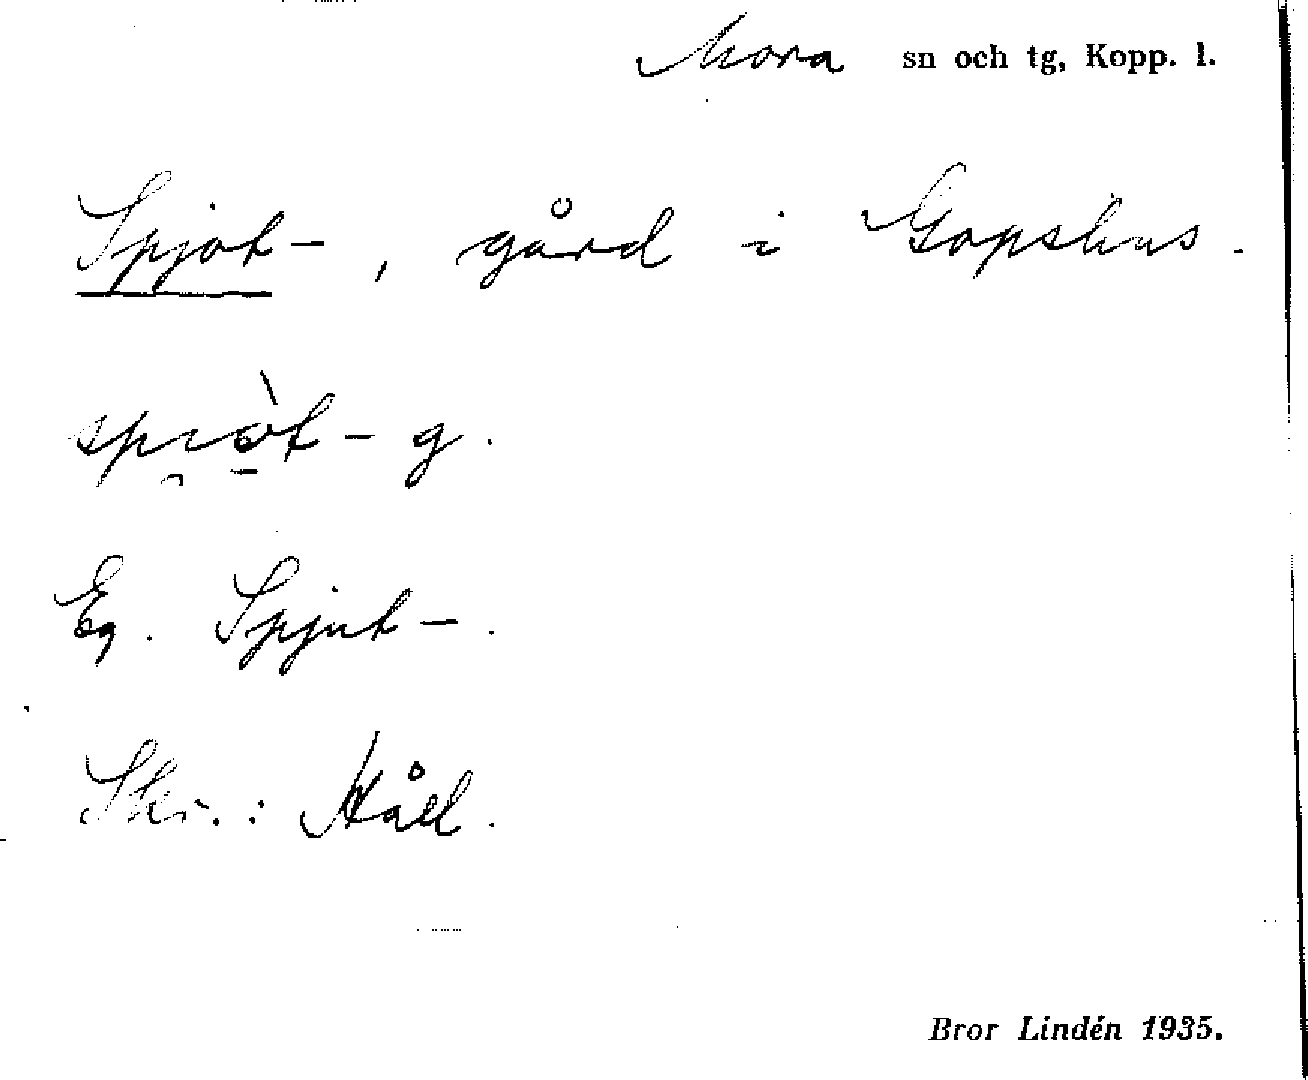 Mora sn och tg, Kopp. l.
Spjot-, gård i Gopshus.
spı̯ò̠t- g.
Eg. Spjut-.
Skr.: Håll.
Bror Lindén 1935.